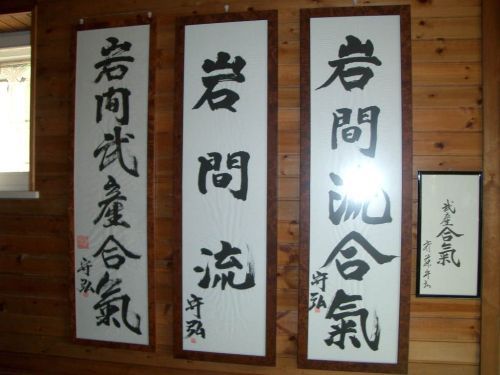 岩間武産合氣
守弘
岩間流
守弘
岩間流合氣
守弘
武産合氣
守弘